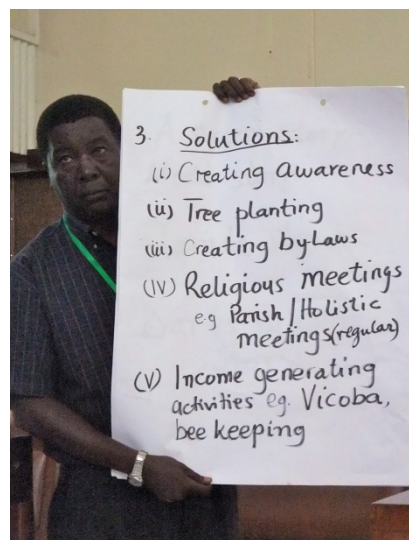 3. Solutions:
(i) Creating awareness
(ii) Tree planting
(iii) Creating by-Laws
(IV) Religious meetings
e.g Parish/Holistic
meetings(regular)
(V) Income generating
activities eg. Vicoba,
bee keeping